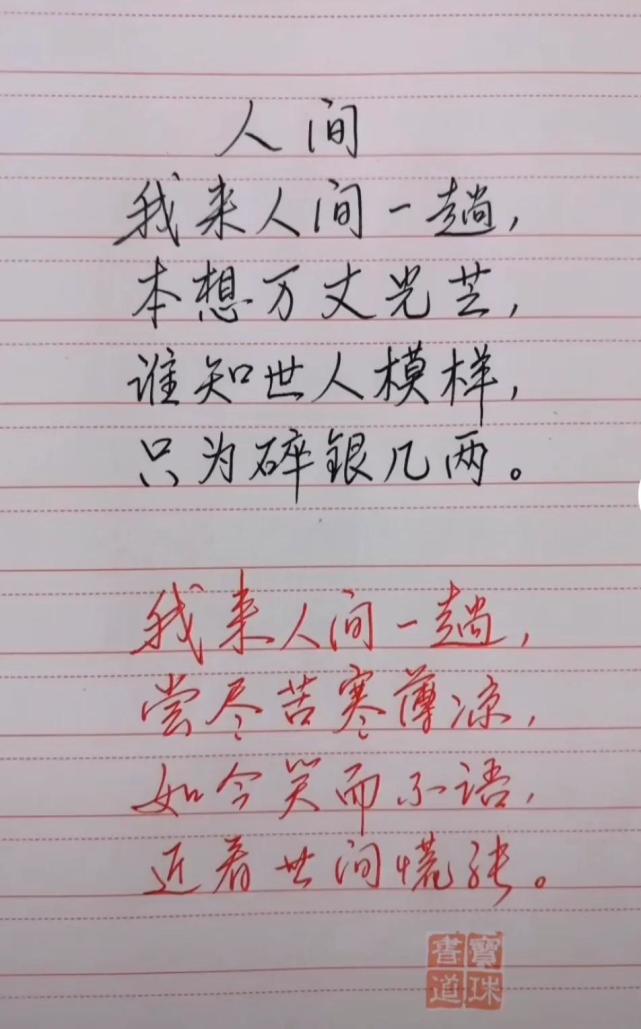 人间
我来人间一趟，
本想万丈光芒，
谁知世人模样，
只为碎银几两。
我来人间一趟，
尝尽苦寒薄凉，
如今笑而不语，
近看世间慌张。
寶珠
書道